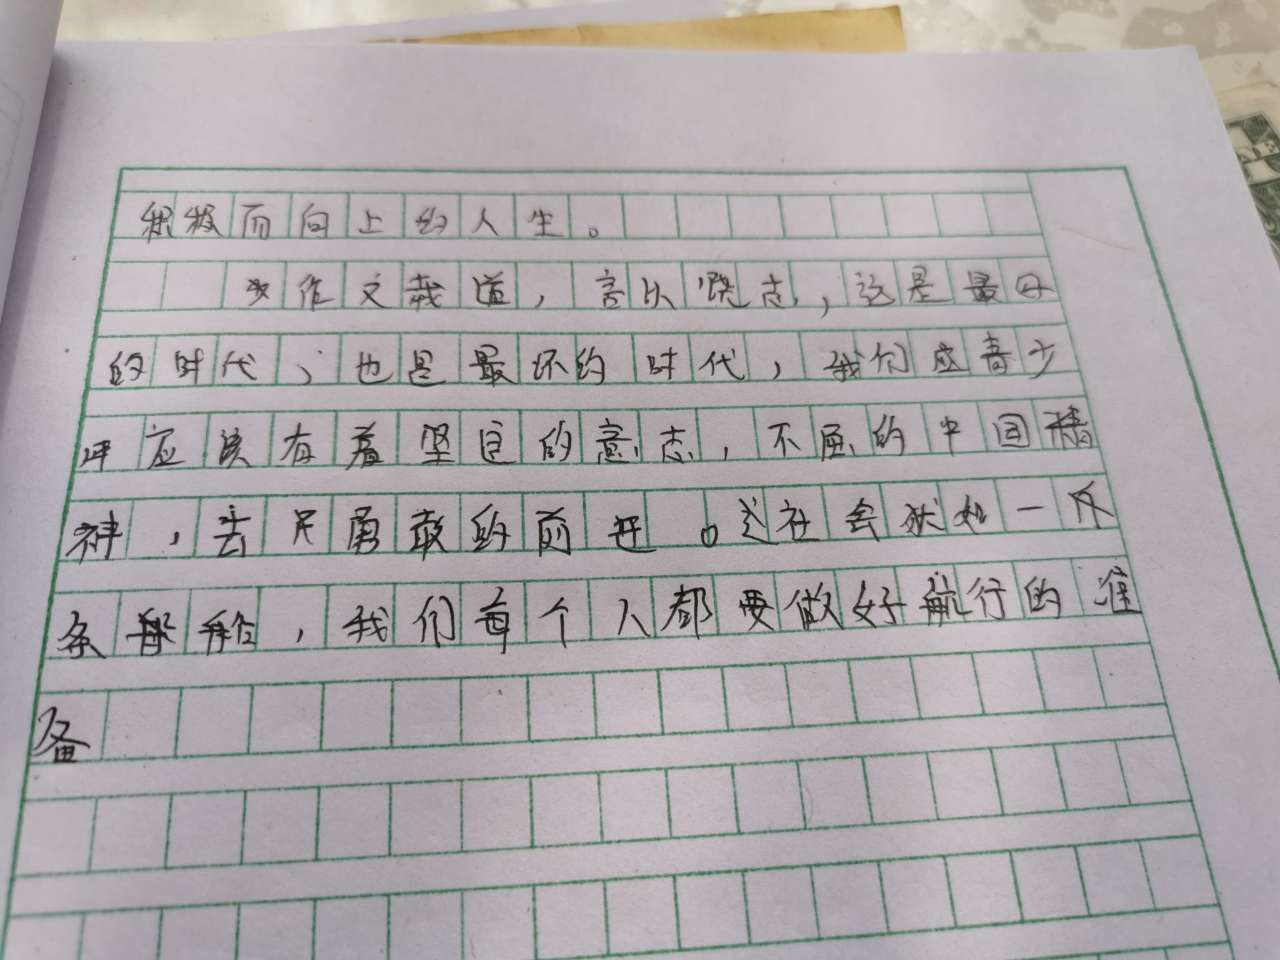 积极而向上的人生。
作文载道，言以晓志，这是最好
的时代，也是最坏的时代，我们应青少
年应该有着坚臣的意志，不屈的中国精
神，去只勇敢的前进。这社会状如一只
条船舶，我们每个人都要做好航行的准
备